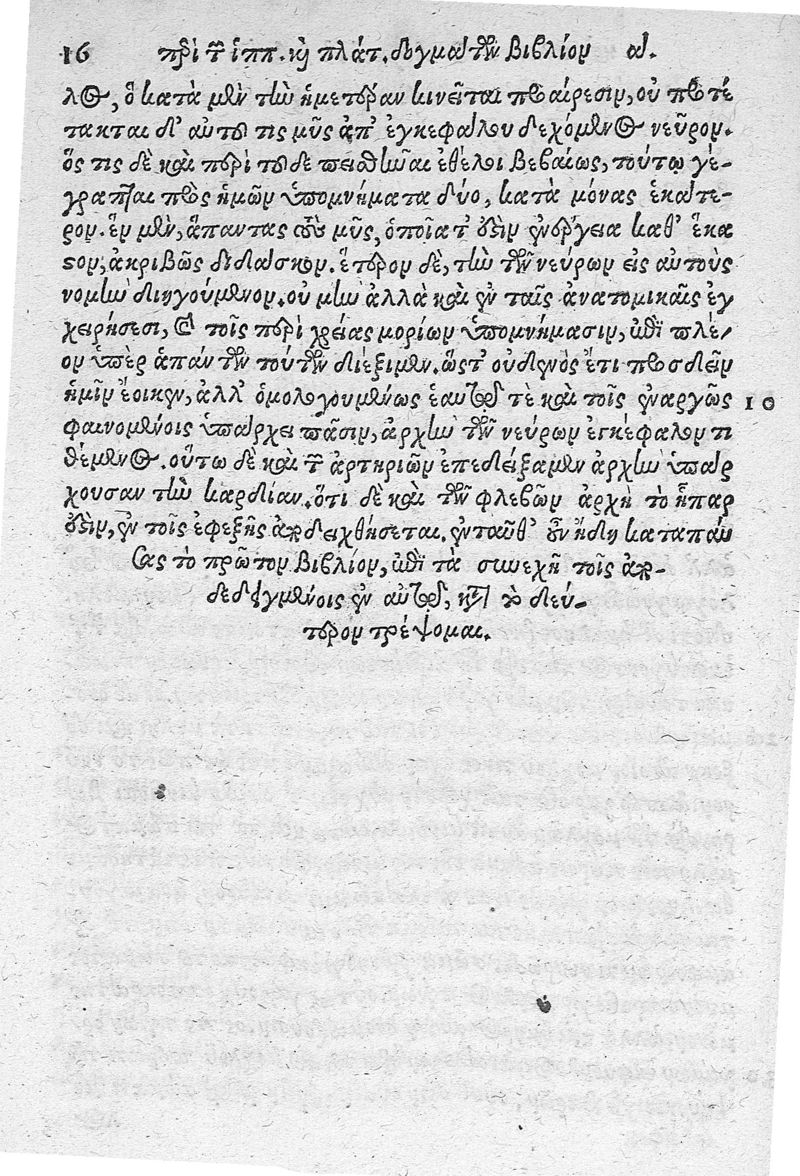 16 περὶ τῶν ἱππ. καὶ πλάτ. δογμάτων βιβλίον α.
λος, ὃ κατὰ μὲν τὴν ἡμετέραν κινεῖται προαίρεσιν, οὐ προτέ
τακται δι' αὐτοῦ τις μῦς ἀπ' ἐγκεφάλου δεχόμενος νεῦρον.
ὅς τις δὲ καὶ περὶ τοῦδε πεισθῆναι ἐθέλοι βεβαίως, τούτῳ γέ-
γραπται πρὸς ἡμῶν ὑπομνήματα δύο, κατὰ μόνας ἑκάτε-
ρον. ἓν μὲν, ἅπαντας τοὺς μῦς, ὁποῖα τ' ἐστὶν ἐνέργεια καθ' ἕκα
στον, ἀκριβῶς διδάσκον. ἕτερον δὲ, τὴν τῶν νεύρων εἰς αὐτοὺς
νομὴν διηγούμενον. οὐ μὴν ἀλλὰ καὶ ἐν ταῖς ἀνατομικαῖς ἐγ
χειρήσεσι, καὶ τοῖς περὶ χρείας μορίων ὑπομνήμασιν, ἐπὶ πλέ-
ον ὑπὲρ ἁπάντων τούτων διέξιμεν, ὥστ' οὐδενὸς ἔτι προσδεῖν
ἡμῖν ἔοικεν, ἀλλ' ὁμολογουμένως ἑαυτῷ τὲ καὶ τοῖς ἐναργῶς 10
φαινομένοις ὑπάρχει πᾶσιν, ἀρχὴν τῶν νεύρων ἐγκέφαλον τι
θέμενος. οὕτω δὲ καὶ τῶν ἀρτηριῶν ἐπεδείξαμεν ἀρχὴν ὑπάρ
χουσαν τὴν καρδίαν. ὅτι δὲ καὶ τῶν φλεβῶν ἀρχὴ τὸ ἧπαρ
ἐστὶν, ἐν τοῖς ἐφεξῆς ἀποδειχθήσεται. ἐνταῦθ' οὖν ἤδη καταπαύ
σας τὸ πρῶτον βιβλίον, ἐπὶ τὰ συνεχῆ τοῖς ἀπο-
δεδειγμένοις ἐν αὐτῷ, κατὰ τὸ δεύ-
τερον τρέψομαι.